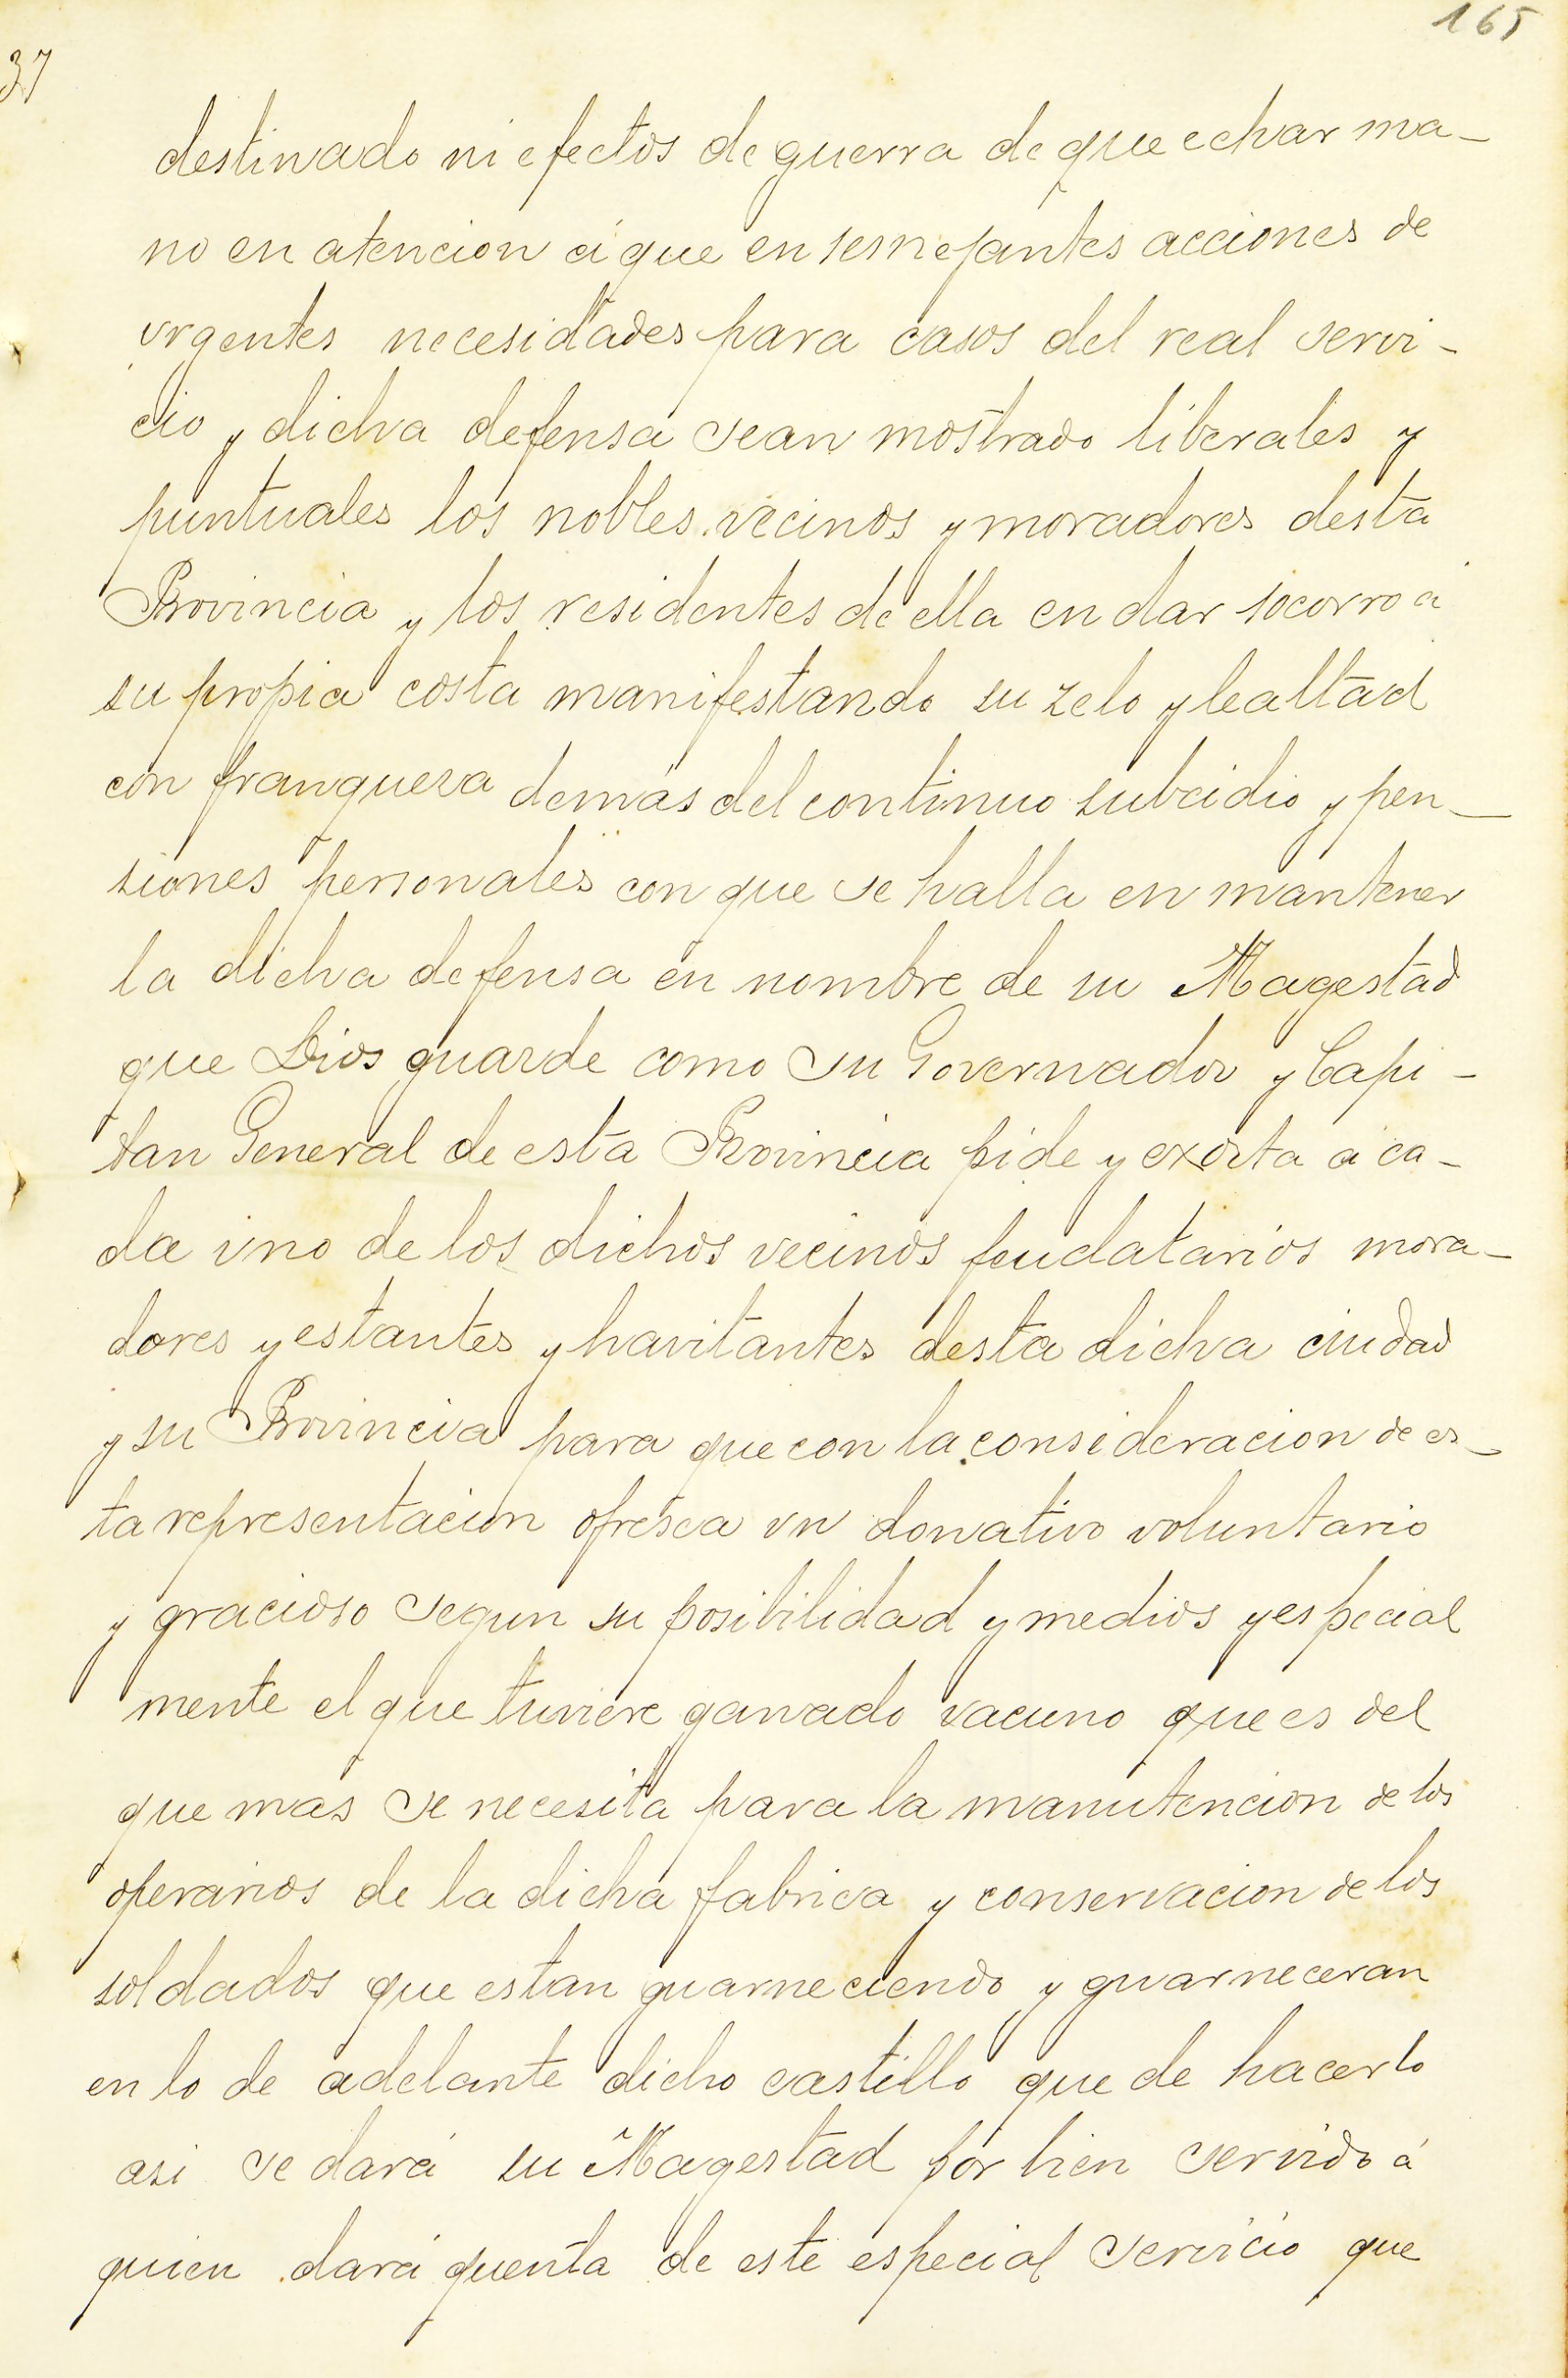 165
37
destinado ni efectos de guerra de que echar ma-
no en atencion á que en semejantes acciones de
urgentes necesidades para casos del real servi-
cio y dicha defensa sean mostrado liberales y
puntuales los nobles vecinos y moradores desta
Provincia y los residentes de ella en dar socorro á
su propia costa manifestando su zelo y lealtad
con franqueza demás del continuo subcidio y pen-
siones personales con que se halla en mantener
la dicha defensa en nombre de su Magestad
que Dios guarde como su Governador y Capi-
tan General de esta Provincia pide y exorta á ca-
da vno de los dichos vecinos feudatarios mora-
dores y estantes y havitantes desta dicha ciudad
y su Provincia para que con la consideracion de es-
ta representacion ofresca vn donativo voluntario
y gracioso segun su posibilidad y medios y especial
mente el que tuviere ganado vacuno que es del
que mas se necesita para la manutencion de los
operarios de la dicha fabrica y conservacion de los
soldados que estan guarneciendo y guarneceran
en lo de adelante dicho castillo que de hacerlo
asi se dará su Magestad por bien servido á
quien dará quenta de este especial servicio que